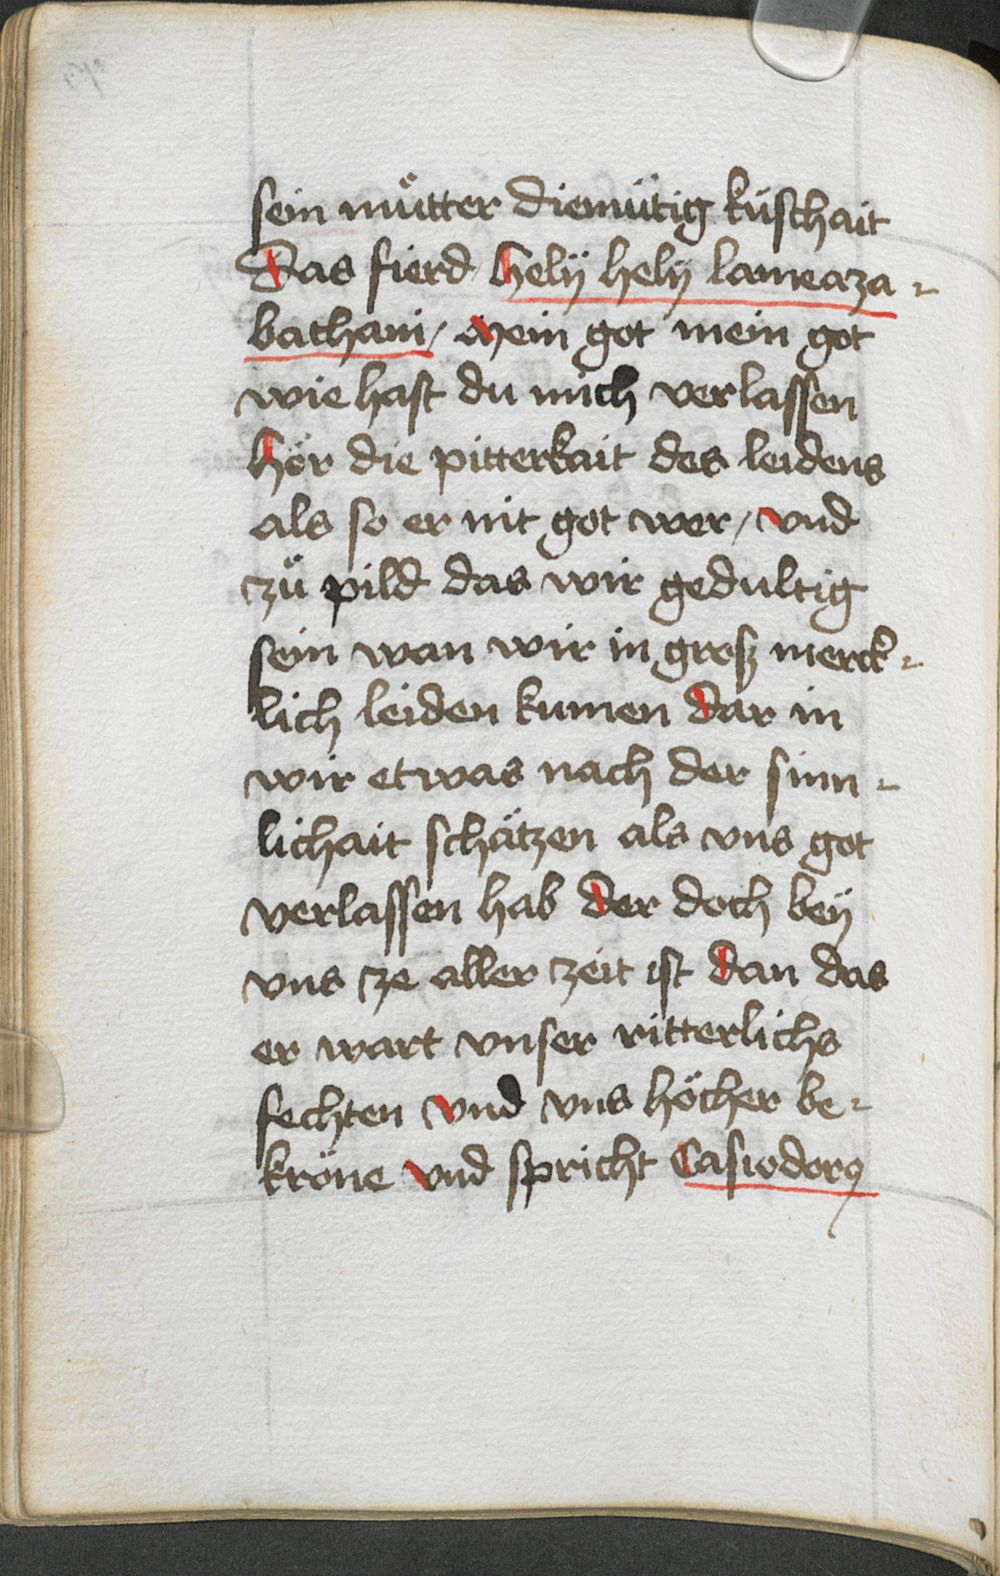 sein můtter diemütig küschait
Das fierd hely hely lameaza-
bathani / Mein got mein got
wie hast du mich verlassen
hör die pitterkait des leidens
als so er nit got wer / vnd
zů pild das wir gedultig
sein wan wir in grosz merck-
lich leiden kumen dar in
wir etwas nach der sinn-
lichait schätzen als vns got
verlassen hab der doch bey
vns ze aller zeit ist dan das
er wart vnser ritterlichs
fechten vnd vns höcher be-
kröne vnd spricht Casiodorꝯ